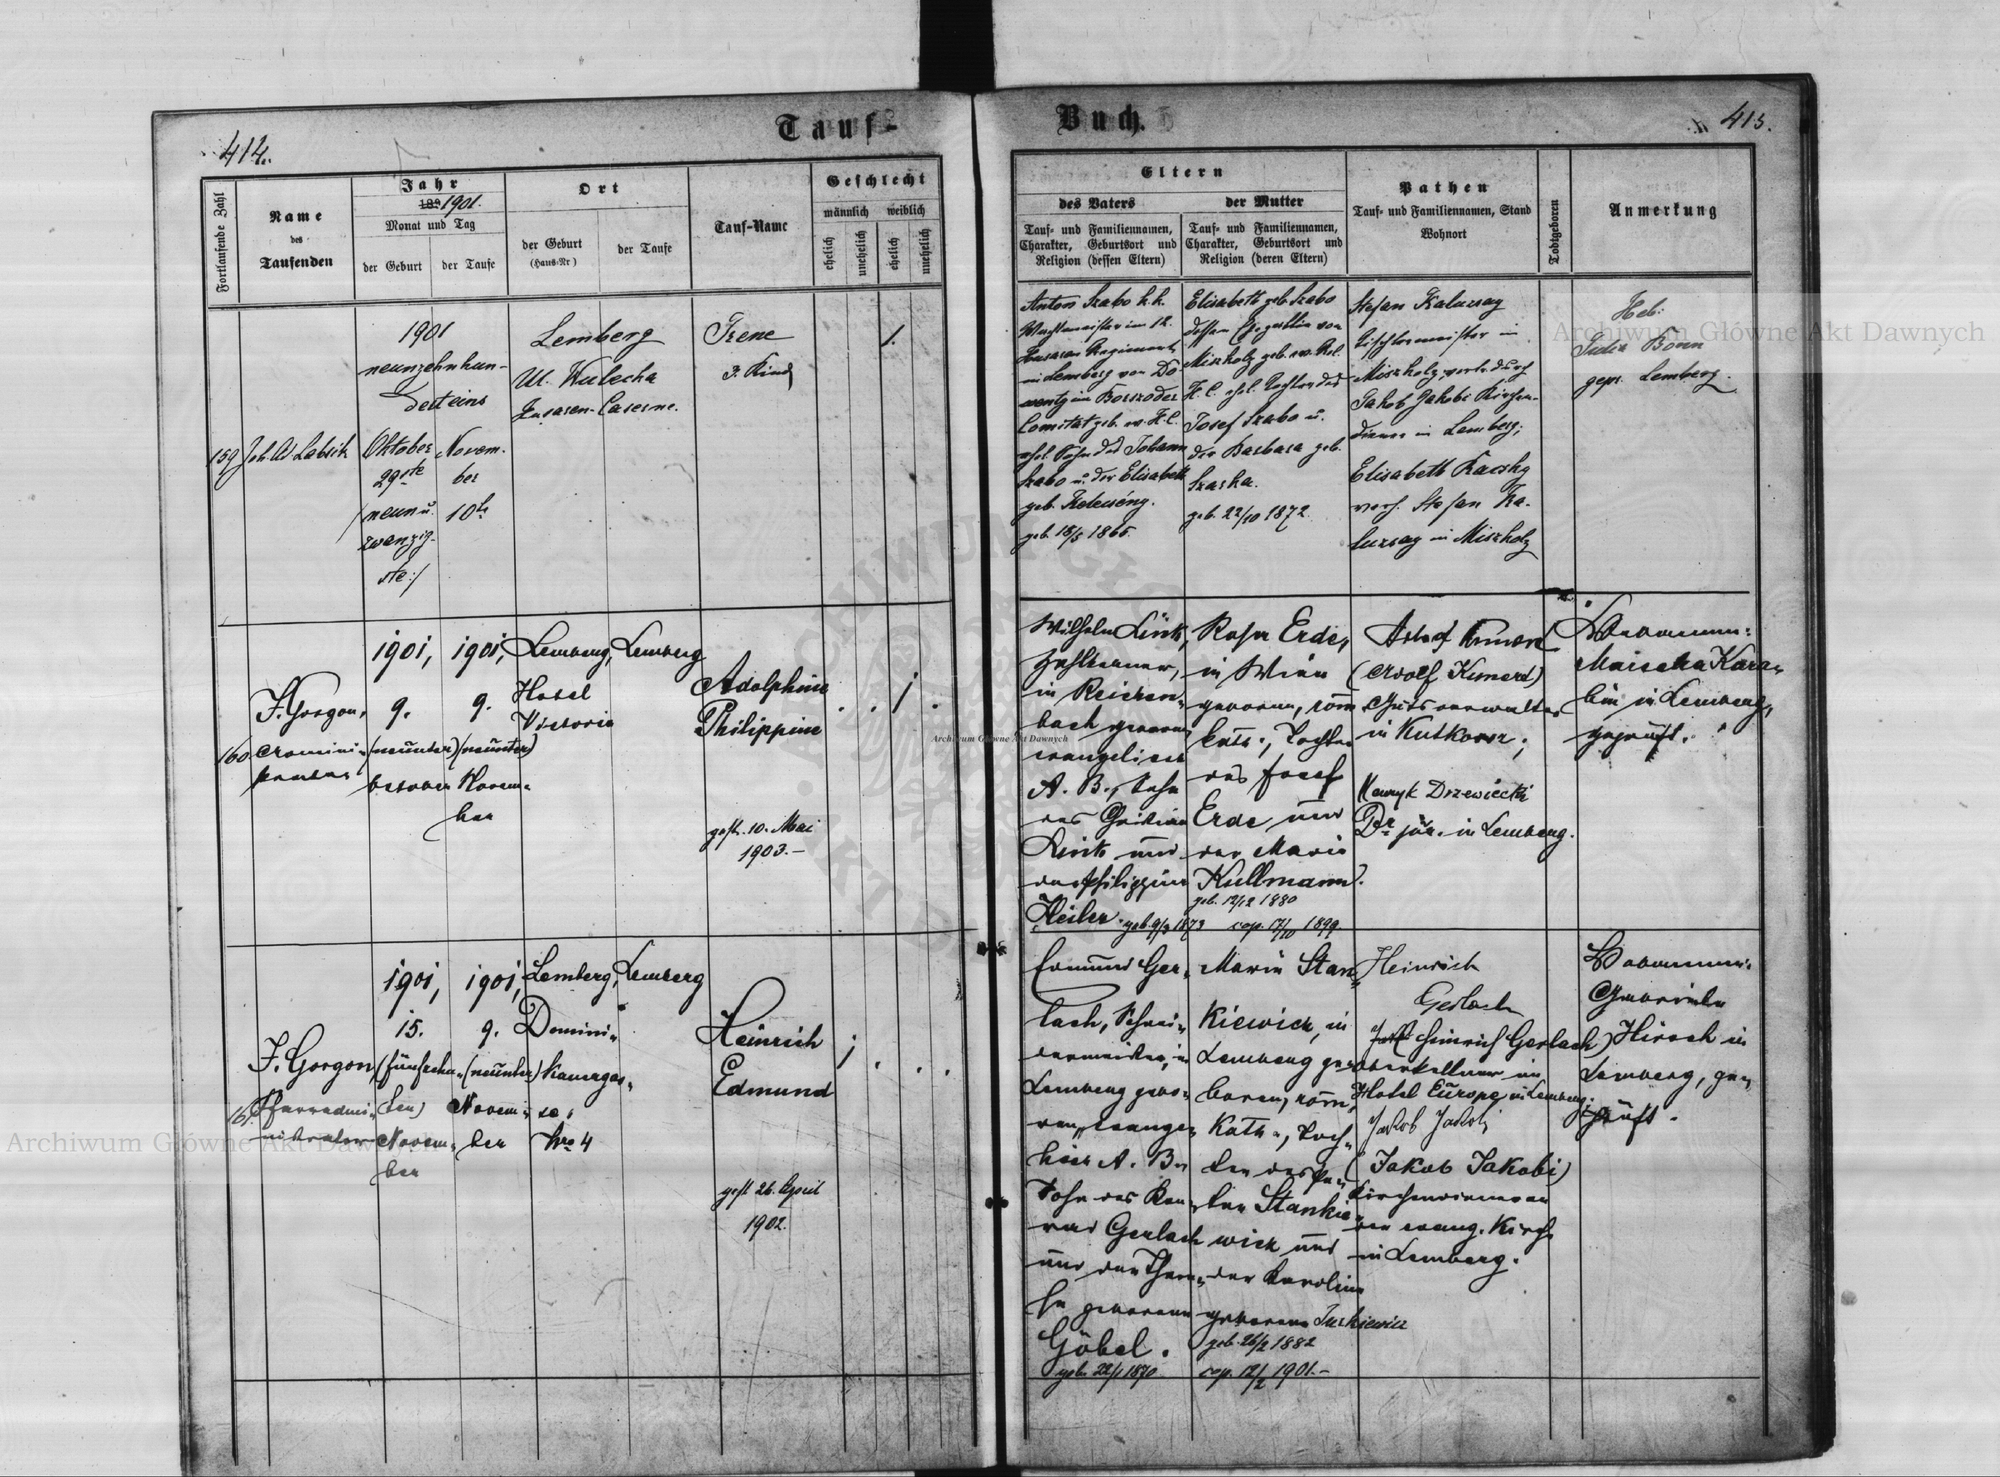 414.
Tauf-
Buch.
415.
Fortlaufende Zahl
Name
des
Taufenden
Jahr
189 1901.
Monat und Tag
der Geburt
der Taufe
Ort
der Geburt
(Haus-Nr)
der Taufe
Tauf-Name
Geschlecht
männlich
weiblich
ehelich
unehelich
ehelich
unehelich
Eltern
des Vaters
Tauf- und Familiennamen,
Charakter, Geburtsort und
Religion (dessen Eltern)
der Mutter
Tauf- und Familiennamen,
Charakter, Geburtsort und
Religion (deren Eltern)
Pathen
Tauf- und Familiennamen, Stand
Wohnort
Todtgeboren
Anmerkung
159
Joh. Ad. Labsik
1901
neunzehnhun-
derteins
Oktober
29ste
/neun u.
zwanzig-
ste:/
Novem-
ber
10te
Lemberg
Ul. Kulecka
Husaren-Caserne.
Irene
3. Kind
1.
Anton Szabo k.k.
Wachtmeister im 12.
Husaren Regiment
in Lemberg von
im Borsoder
Comitat geb. ev. H.C.
ehel. Sohn des Johann
Szabo u. der Elisabeth
geb.
geb. 18/5 1865.
Elisabeth geb. Szabo
dessen Ehegattin von
Miszkolz geb. ev. Rel.
H.C. ehel. Tochter des
Josef Szabo u.
der Barbara geb.
Szaska.
geb. 22/10 1872
Stefan Kaluzsay
Tischlermeister in
Miszkolz, vertr. durch
Jakob Jakobi Kirchen-
diener in Lemberg;
Elisabeth
verh. Stefan Ka-
luzsay in Miszkolz
Heb:
Julia Bonn
gepr. Lemberg.
160.
F. Gorgon,
1901,
9.
(neunter)
October
1901,
9.
(neunter)
Novem-
ber
Lemberg,
Hotel
Victoria
Lemberg
Adolphine
Philippine
gest. 10. Mai
1903.-
Wilhelm Link,
Zahlkellner,
in Reichen-
bach geboren,
evangelisch
A. B., Sohn
des Christian
Link und
der Philippine
Heiler. geb. 9/3 1873
Rosa Erde,
in Wien
geboren, röm.
kath., Tochter
des Josef
Erde und
der Marie
Kullmann.
geb. 12/12 1880
cop. 17/10 1899
(Adolf Kimerd)
Gutsverwalter
in Kutkorz;
Henryk Drzewiecki
Dr jur. in Lemberg.
Hebamme:
Maischa Kara-
bin in Lemberg,
geprüft.
161.
F. Gorgon
Pfarradmi-
nistrator
1901,
15.
(fünfzehn-
ten)
Novem-
ber
1901,
9.
(neunter)
Novem-
ber
Lemberg,
Domini-
kanergas-
se,
Nro 4
Lemberg
Heinrich
Edmund
gest. 26. April
1902.
1
Edmund Ger-
lach, Schnei-
dermeister, in
Lemberg gebo-
ren, evange-
lisch A. B.
Sohn des Kon-
rad Gerlach
und der There-
se geborene
Göbel.
geb. 22/1 1870
Marie Stan-
kiewicz, in
Lemberg ge-
boren, röm.
kath., Toch-
ter des Pe-
ter Stankie-
wicz und
der Karoline
geborene Turkiewicz
geb. 26/2 1882
cop. 12/2 1901.-
Heinrich
Gerlach
Heinrich Gerlach)
Oberkellner im
Hotel Europe in Lemberg;
Jakob Jakobi
(Jakob Jakobi)
Kirchendiener an
der evang. Kirche
in Lemberg.
Hebamme:
Gabriele
Hirsch in
Lemberg, ge-
prüft.
Archiwum Główne Akt Dawnych
Archiwum Główne Akt Dawnych
Archiwum Główne Akt Dawnych